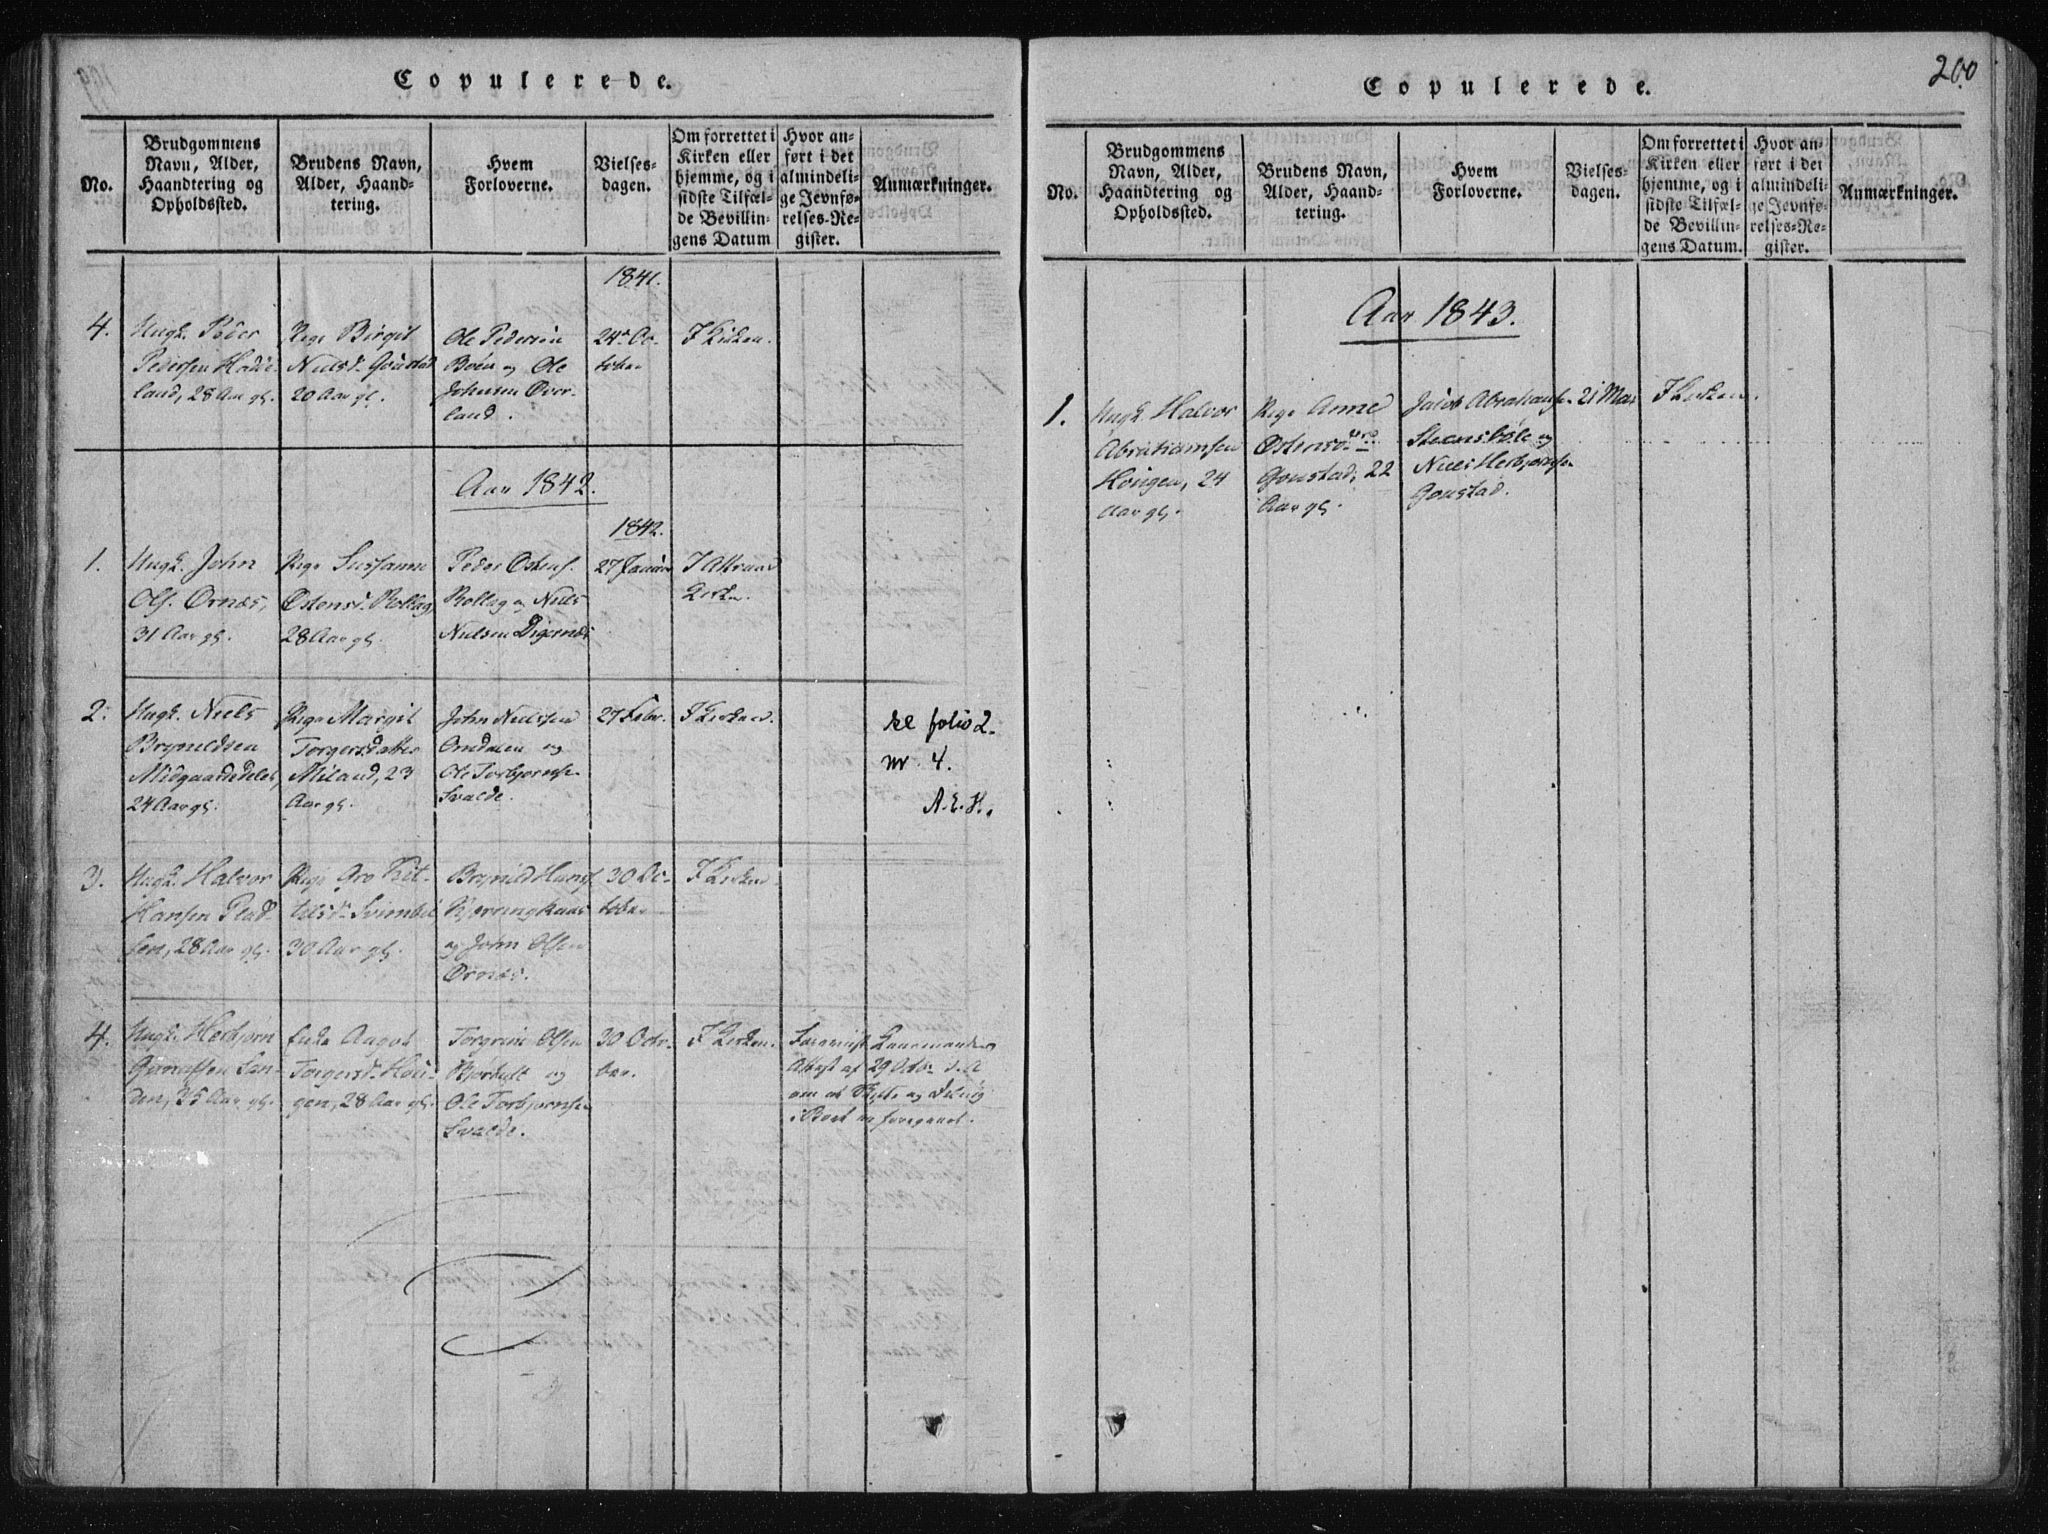 Copulerede.
No.
Brudgommens
Navn, Alder,
Haandtering og
Opholdssted.
Brudens Navn,
Alder, Haand-
tering.
Hvem
Forloverne.
Vielses-
dagen.
Om forrettet i
Kirken eller
hjemme, og i
sidste Tilfæl-
de Bevillin-
gens Datum
Hvor an-
ført i det
almindeli-
ge Jevnfø-
relses-Re-
gister.
Anmærkninger.
1841.
4.
Ungk. Peder
Pedersen Hadde-
land, 28 Aar gl.
Pige Birgit
Nielsd. Goustad
20 Aar gl.
Ole Pedersen
Böen og Ole
Johnsen Over-
land.
24de Oc-
tober
I Kirken.
Aar 1842.
1842.
1.
Ungk. John
Ols. Ornæs,
31 Aar gl.
Pige Sussanne
Östensd. Rollag
28 Aar gl.
Peder Östens.
Rollag og Niels
Nielsen Digernæs
27 Januar
I Attraae
Kirke.
2.
Ungk. Niels
Brynildsen
Midgaardedelen
24 Aar gl.
Pige Margit
Torgersdatter
Miland, 23
Aar gl.
John Nielssen
Ormdalen og
Ole Torbjørnse-
Svalde.
27 Febr.
I Kirken.
kl folio 2.
nr 4.
A. E. H.
3.
Ungk. Halvor
Hansen Plad-
sen, 28 Aar gl.
Pige Gro Kit-
tilsdr Svimbil
30 Aar gl.
Brynild Hans.
Bjørringkaas
og John Olsen
Ørnæs.
30 Oc-
tober
I Kirken
4.
Ungk. Herbjørn
Gunnassen San-
den, 35 Aar gl.
Enke Aagot
Torgersd. Hou-
gen, 28 Aar gl.
Torgrim Olsen
Bjørhult og
Ole Torbjørnsen
Svalde.
30 Octo-
ber.
I Kirken.
Forevist Laugmandens
Attest af 29 Octbr d. A
om at Skifte og Deling
i Boet er foregaaet.
Copulerede.
200
No.
Brudgommens
Navn, Alder,
Haandtering og
Opholdssted.
Brudens Navn,
Alder, Haand-
tering.
Hvem
Forloverne.
Vielses-
dagen.
Om forrettet i
Kirken eller
hjemme, og i
sidste Tilfæl-
de Bevillin-
gens Datum.
Hvor an-
ført i det
almindeli-
ge Jevnfø-
relses-Re-
gister.
Anmærkninger.
Aar 1843.
1.
Ungk. Halvor
Abrahamsen
Hougen, 24
Aar gl.
Pige Anne
Östensd.
Goustad, 22
Aar gl.
Jacob Abrahamse-
Steensböle og
Niels Herbjørnse-
Goustad.
21 Mai
I Kirken.